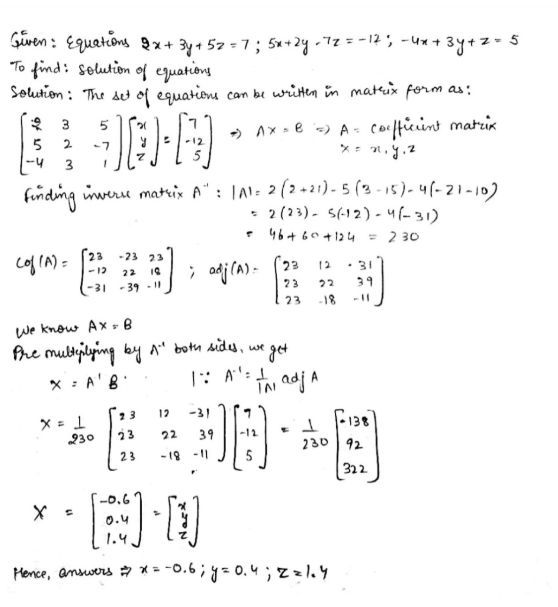 Given: Equations 2x + 3y + 5z = 7 ; 5x + 2y - 7z = -12 ; -4x + 3y + z = 5
To find: Solution of equations
Solution: The set of equations can be written in matrix form as:
[2 3 5; 5 2 -7; -4 3 1] [x; y; z] = [7; -12; 5] ⇒ AX = B ⇒ A = Coefficient matrix
X = x, y, z
Finding inverse matrix A⁻¹ : |A| = 2(2+21) - 5(3-15) - 4(-21-10)
= 2(23) - 5(-12) - 4(-31)
= 46 + 60 + 124 = 230
Cof(A) = [23 -23 23; -12 22 18; -31 -39 -11] ; adj(A) = [23 12 -31; 23 22 39; 23 -18 -11]
We know AX = B
Pre multiplying by A⁻¹ both sides, we get
X = A' B' | ∵ A⁻¹ = 1/|A| adj A
X = 1/230 [23 12 -31; 23 22 39; 23 -18 -11] [7; -12; 5] = 1/230 [-138; 92; 322]
X = [-0.6; 0.4; 1.4] = [x; y; z]
Hence, answers ⇒ x = -0.6 ; y = 0.4 ; z = 1.4